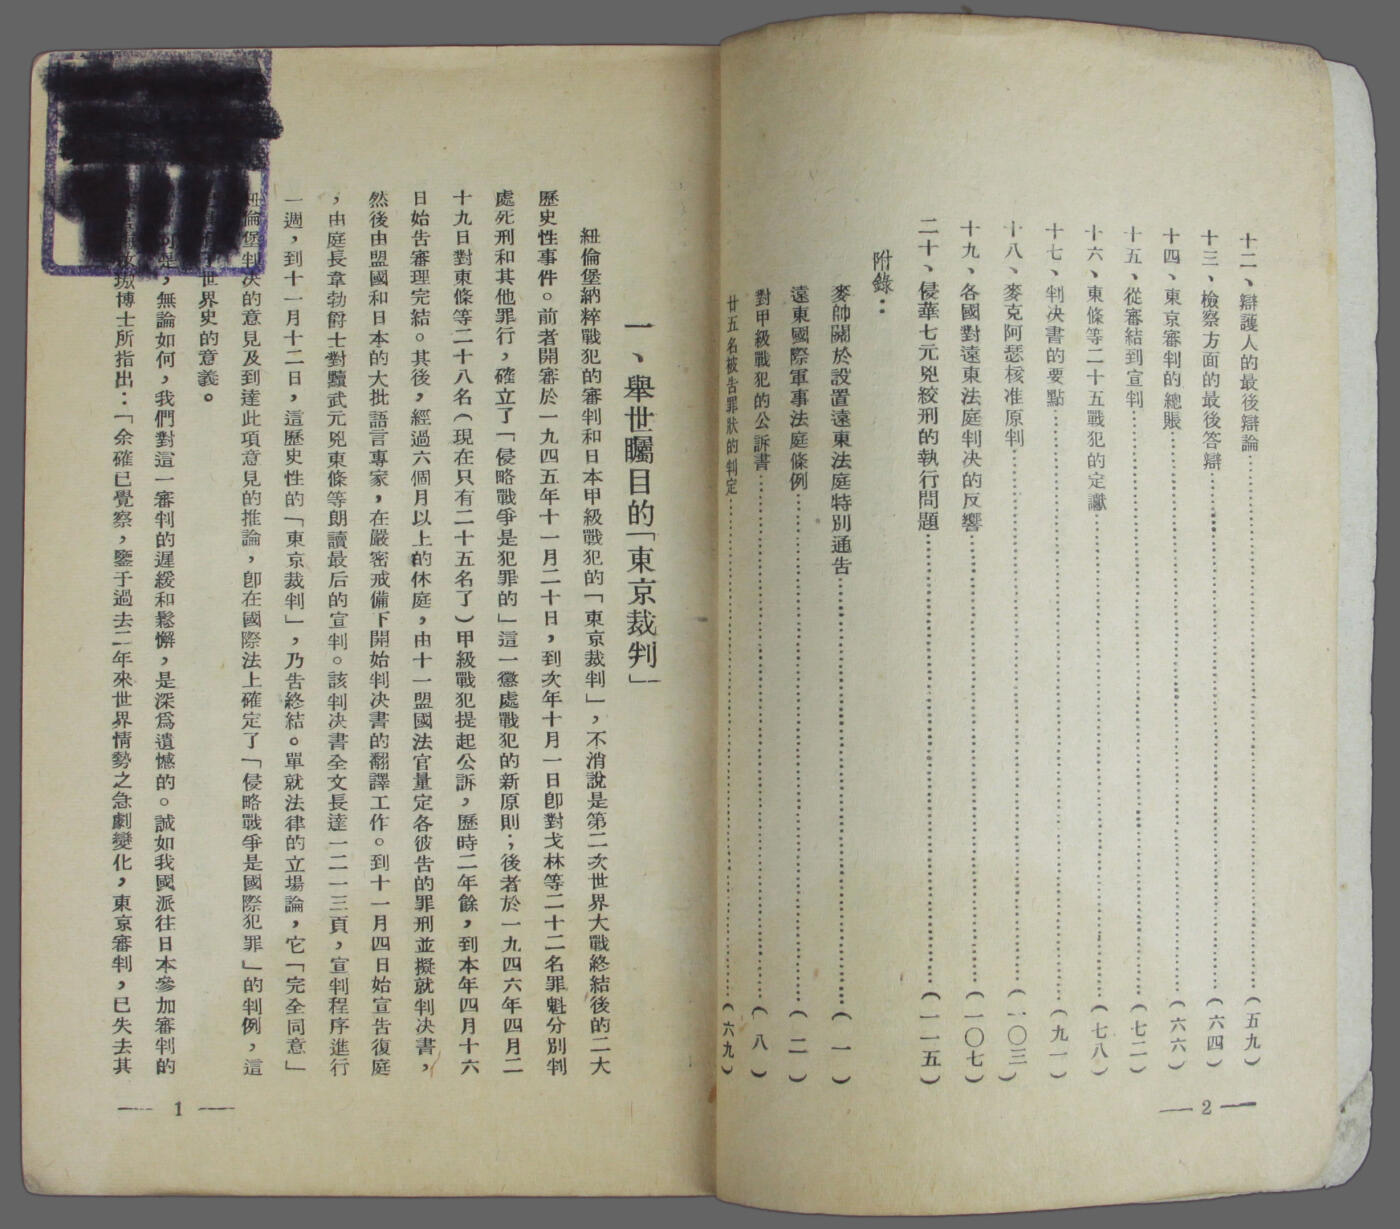 十二、辯護人的最後辯論……(五九)
十三、檢察方面的最後答辯……(六四)
十四、東京審判的總賬……(六六)
十五、從審結到宣判……(七二)
十六、東條等二十五戰犯的定讞……(七八)
十七、判决書的要點……(九一)
十八、麥克阿瑟核准原判……(一〇三)
十九、各國對遠東法庭判决的反響……(一〇七)
二十、侵華七元兇絞刑的執行問題……(一一五)
附錄：
麥帥關於設置遠東法庭特別通告……(一)
遠東國際軍事法庭條例……(二)
對甲級戰犯的公訴書……(八)
廿五名被告罪狀的判定……(六九)
— 2 —
一、舉世矚目的「東京裁判」
紐倫堡納粹戰犯的審判和日本甲級戰犯的「東京裁判」，不消說是第二次世界大戰終結後的二大
歷史性事件。前者開審於一九四五年十一月二十日，到次年十月一日卽對戈林等二十二名罪魁分別判
處死刑和其他罪行，確立了「侵略戰爭是犯罪的」這一懲處戰犯的新原則；後者於一九四六年四月二
十九日對東條等二十八名(現在只有二十五名了)甲級戰犯提起公訴，歷時二年餘，到本年四月十六
日始告審理完結。其後，經過六個月以上的休庭，由十一盟國法官量定各彼告的罪刑並擬就判决書，
然後由盟國和日本的大批語言專家，在嚴密戒備下開始判决書的翻譯工作。到十一月四日始宣告復庭
，由庭長韋勃爵士對黷武元兇東條等朗讀最后的宣判。該判决書全文長達一二一三頁，宣判程序進行
一週，到十一月十二日，這歷史性的「東京裁判」，乃告終結。單就法律的立場論，它「完全同意」
紐倫堡判决的意見及到達此項意見的推論，卽在國際法上確定了「侵略戰爭是國際犯罪」的判例，這
世界史的意義。
可是，無論如何，我們對這一審判的遲緩和鬆懈，是深爲遺憾的。誠如我國派往日本參加審判的
璈博士所指出：「余確已覺察，鑒于過去二年來世界情勢之急劇變化，東京審判，已失去其
— 1 —